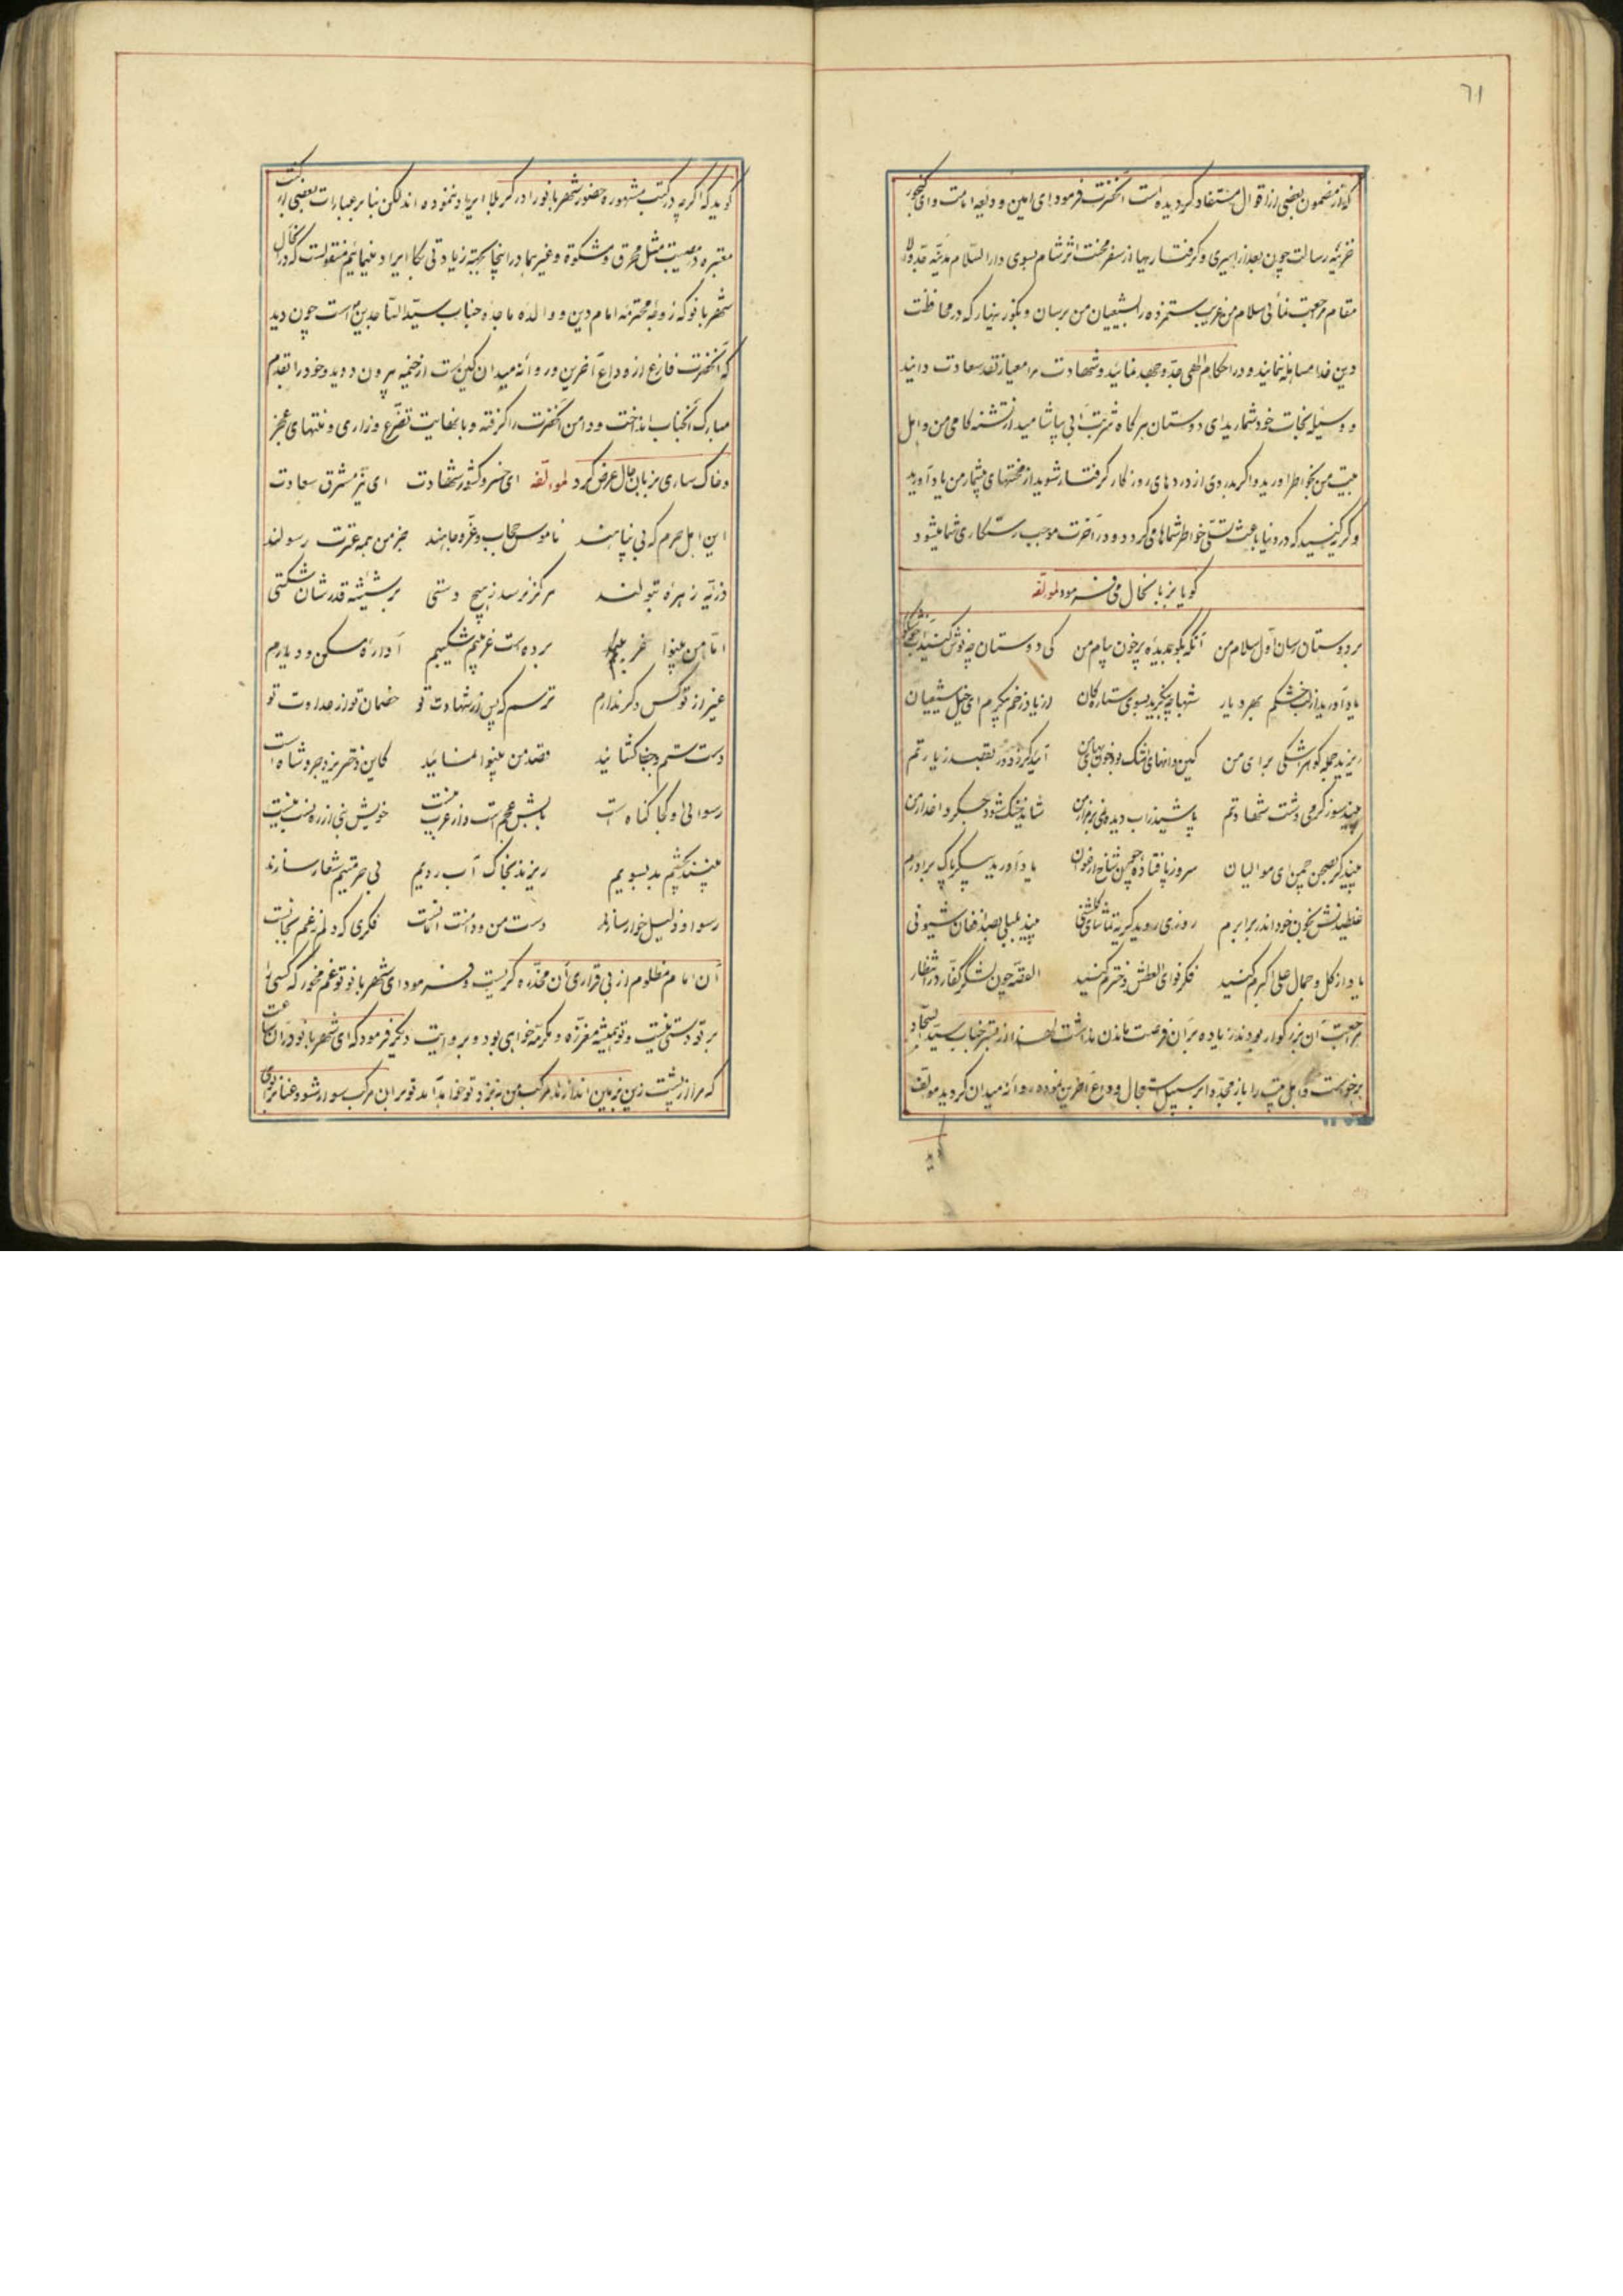 ٦١
که از مضمون بعضی از اقوال مستفاد گردیده است آنحضرت فرمود ای امین ودیعه امامت و ای گنجور
خزینه رسالت چون بعد از اسیری و گرفتاریها از سفر محنت اثر شام بسوی دار السلام مدینه جد والا
مقام مرجعت نمائی سلام من غریب ستمزده را بشیعیان من برسان و بگو زنهار که در محافظت
دین خدا مساهله ننمایند و در احکام الهی جد و جهد نمائید و شهادت مرا معیار نقد سعادت دانید
و وسیله نجات خود شمارید ای دوستان هر گاه شربت آبی بیاشامید از تشنه کامی من و اهل
بیت من بخواطر آورید و اگر بدردی از دردهای روزگار گرفتار شوید از محنتهای بیشمار من یاد آورید
و گریه کنید که در دنیا باعث تسلی خواطر شماها میگردد و در آخرت موجب رستگاری شما میشود
گویا بزبانحال می فرمود لمولفه
بر دوستان رسان اول سلام من آنگه بگو بدیده پر خون پیام من کی دوستان چه نوش کنید آب
یاد آورید از لب خشکم بهر دیار شبها چو بنگرید بسوی ستارگان از یاد زخم پیکرم ای خیل شیعیان
ریزید جمله گوهر اشکی برای من کین دانهای اشک بود خونبهای من آید گر زدور بقصد زیارتم
بیند سوز گرمی دشت شهادتم پاشیند آب دیده دمی بر مزار من شاید خنک شود جگر داغدار من
بیند گر بصحن چمن ای موالیان سرو ز پا فتاده چو شاخ ارغوان یاد آورید پیکر پاک برادرم
غلطیدنش بخون خود اندر برابرم روزی روید گر به تماشای گلشنی بیند بلبلی بصد افغان شیونی
یاد از گل جمال علی اکبرم کنید فکر نوای العطش دخترم کنید القصه چون لشگر کفار در انتظار
مرجعت آن بزرگوار بودند زیاده بر آن فرصت ماندن نداشت لهذا از بستر جناب سید سجاد
برخواست و اهل بیت را باز مجددا بر سبیل استعجال وداع آخرین نموده روانه میدان گردید مولف
گوید که اگر چه در کتب مشهوره حضور شهربانو را در کربلا ایراد ننموده اند لکن بنا بر عبارات بعضی از کتب
معتبره مصیبت مثل محرق و مشکوة و غیرهما در اینجا بجهة زیادتی بکا ایراد مینمائیم منقولست که در آنحال
شهربانو که زوجه محترمه امام دین و والده ماجده جناب سید الساجدین است چون دید
که آنحضرت فارغ از وداع آخرین و روانه میدان کین است از خیمه بیرون دوید و خود را بقدم
مبارک آنجناب انداخت و دامن آنحضرت را گرفته و با نهایت تضرع و زاری و منتهای عجز
و خاکساری بزبان حال عرض کرد لمولفه ای خسرو کشور شهادت ای نیر مشرق سعادت
این اهل حرم که بی پناهند ناموس حجاب و عز و جاهند جز من همه عترت رسولند
ذریه زهره بتولند هرگز نرسد ز هیچ دستی بر شیشه قدرشان شکستی
اما من بینوا غریبم برده است غم شکیبم آواره مسکن و دیارم
غیر از تو کس دگر ندارم ترسم که پس از شهادت تو خصمان تو از عداوت تو
دست ستم و جفا گشایند قصد من بینوا نمایند کاین دختر یزدجرد شاه است
رسوائی او کجا گناه است بابش عجم است و از عرب نیست خویش نبی از ره نسب نیست
بینند بچشم بد بسویم ریزند بخاک آب رویم بی حرمتیم شعار سازند
رسوا و ذلیل و خوار سازند دست من و دامنت امانست فکری که دلم ز غم بجانست
آن امام مظلوم از بی قراری آن مخدره گریست و فرمود ای شهربانو تو غم مخور که کسی را
بر تو دستی نیست و تو همیشه معززه و مکرمه خواهی بود و بروایت دیگر فرمود که ای شهربانو در آن ساعت
که مرا از پشت زین بزمین اندازند مرکب من بنزد تو خواهد آمد تو بر آن مرکب سوار شو و عنان